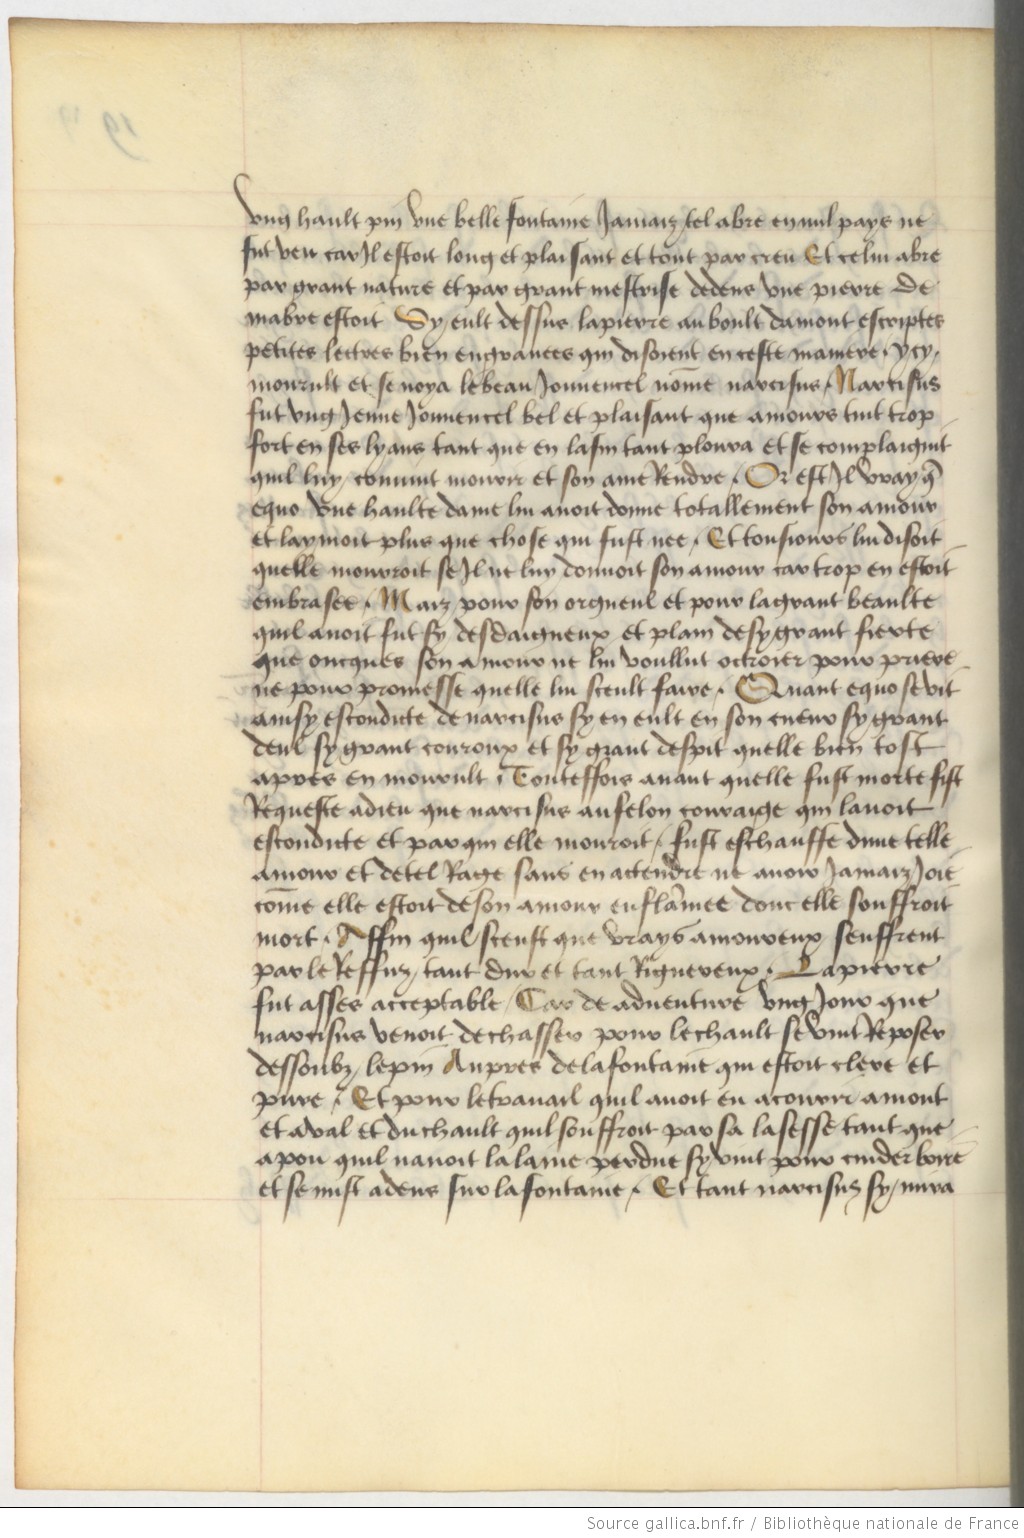 vng hault pin vne belle fontaine Jamaiz tel abre en nul pays ne
fut veu car Il estoit long et plaisant et tout par creu Et celui abre
par grant nature et par grant mestrise dedens vne pierre de
mabre estoit Sy eult dessus la pierre au boult damont escriptes
petites lectres bien engrauees qui disoient en ceste maniere . ycy
mourult et se noya le beau Jouuencel nõme narcisus . Narcisus
fut vng Jeune Jouuencel bel et plaisant que amours tint trop
fort en ses lyans tant que en la fin tant ploura et se complaignit
quil luy conuint mourir et son ame Rendre . Or est Il vray q̃
equo vne haulte dame lui auoit donne totallement son amour
et laymoit plus que chose qui fust nee . Et tousiours lui disoit
quelle mourroit se Il ne luy donnoit son amour car trop en estoit
embrasee . Maiz pour son orgueul et pour la grant beaulte
quil auoit fut sy desdaigneux et plain de sy grant fierte
que oncques son amour ne lui voullut octroier pour priere
ne pour promesse quelle lui sceult faire . Quant equo se vit
ainsy escondicte de narcisus sy en eult en son cueur sy grant
deul sy grant couroux et sy grant despit quelle bien tost
apres en mourult . Touteffois auant quelle fust morte fist
Requeste a dieu que narcisus au felon couraige qui lauoit
escondicte et par qui elle mouroit / fust eschauffe dune telle
amour et de tel Rage sans en actendre ne auoir Jamaiz Joie
cõme elle estoit de son amour enflãmee donc elle souffroit
mort . Affin quil sceust que vrays amoureux seuffrent
par le Reffuz tant dur et tant Riguereux . La pierre
fut asses acceptable / Car de aduenture vng Jour que
narcisus venoit de chasser pour le chault se vint Reposer
dessoubz le pin Aupres de la fontaine qui estoit clere et
pure . Et pour le trauail quil auoit eu a courir amont
et aval et du chault quil souffroit par sa lasesse tant que
a pou quil nauoit lalaine perdue sy vint pour cuider boire
et se mist adens sur la fontaine . Et tant narcisus sy mira
Source gallica.bnf.fr / Bibliothèque nationale de France